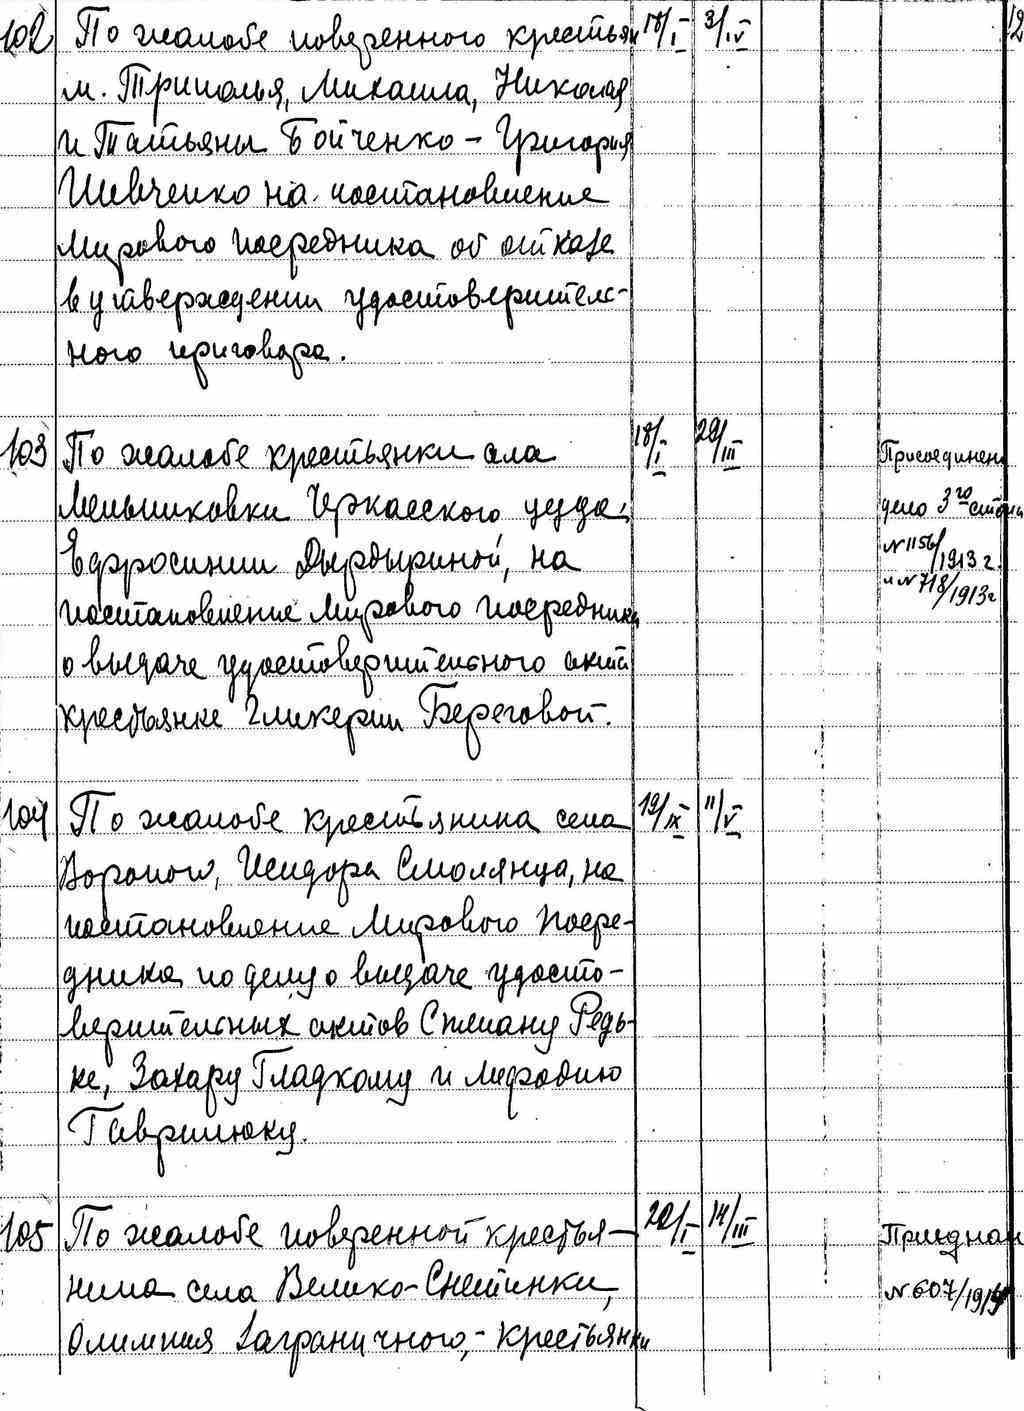 102 По жалобе поверенного крестьян 18/I 3/IV 12
м. Триполья, Михаила, Николая
и Татьяны Бойченко – Григория
Шевченко на постановление
Мирового посредника об отказе
в утверждении удостоверитель-
ного приговора.
103 По жалобе крестьянки села 18/I 29/III Присоединено
Мельниковки Черкасского уезда, дело 3го стола
Евфросинии Дырдыриной, на №1156/1913 г.
постановление Мирового посредника и №718/1913г
о выдаче удостоверительного акта
крестьянке Гликерии Береговой.
104 По жалобе крестьянина села 19/IX 11/V
Вороного, Исидора Смолянца, на
постановление Мирового Посре-
дника по делу о выдаче удосто-
верительных актов Степану Редь-
ке, Захару Гладкому и Мефодию
Гаврилюку.
105 По жалобе поверенной крестья- 20/I 14/III Приєднан
нина села Велико-Снетинки, №607/1914
Олимпия Заграничного, - крестьянки